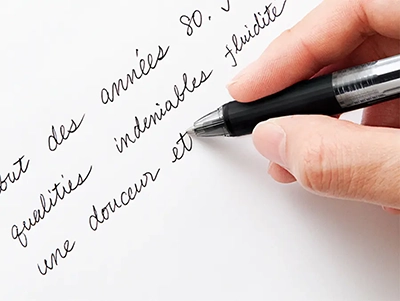 but des années 80. v
qualities indeniables fluidite
une douceur et